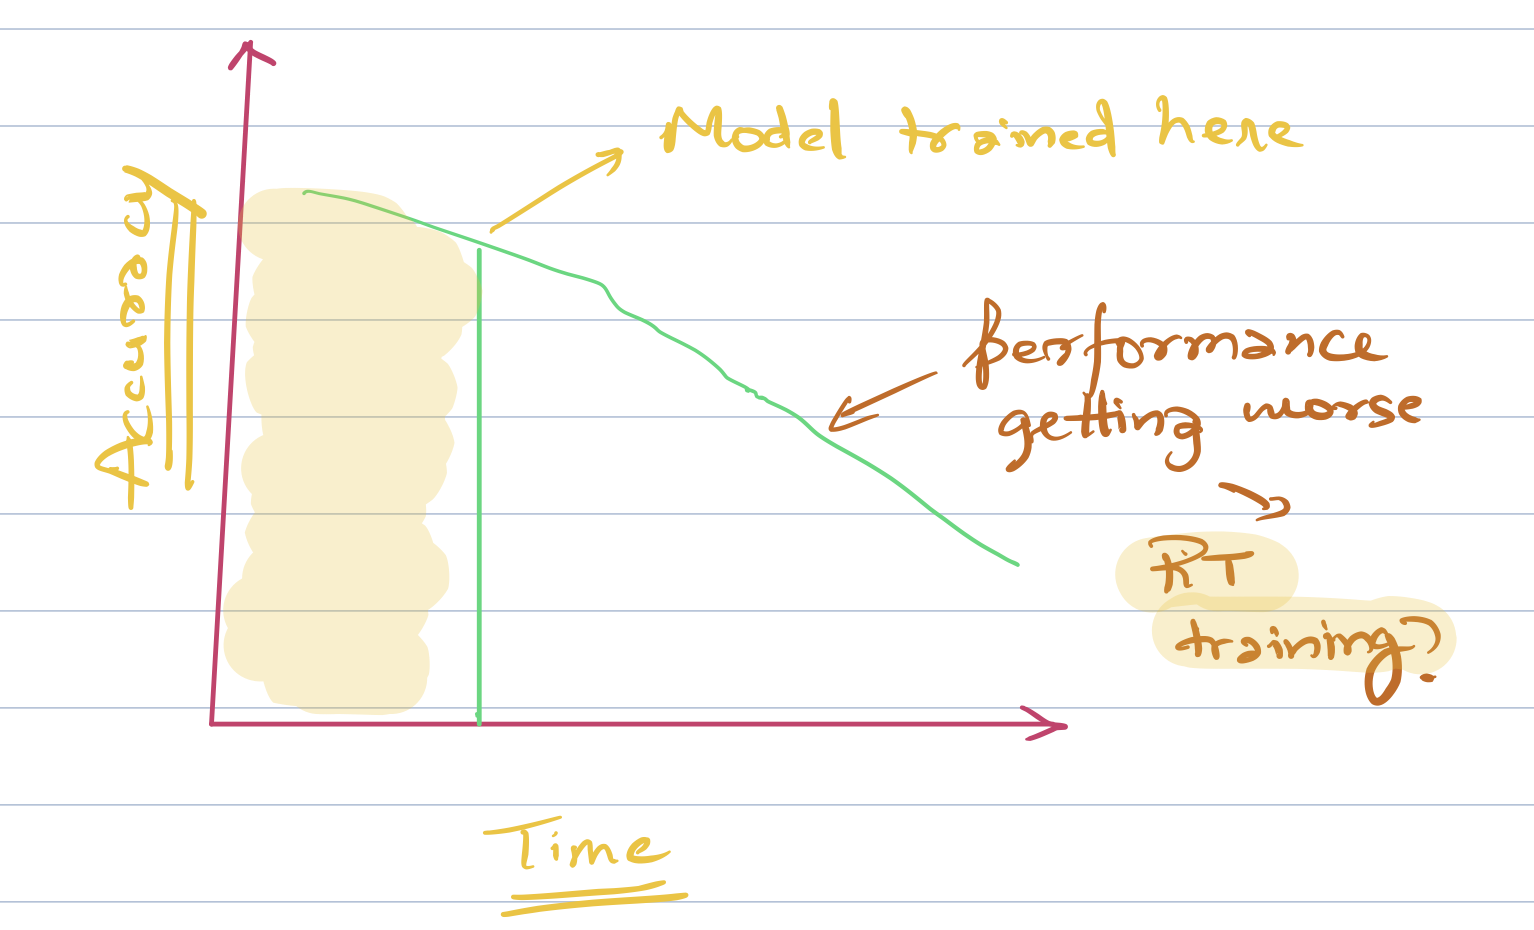 Model trained here
Accuracy
performance
getting worse
RT
training?
Time